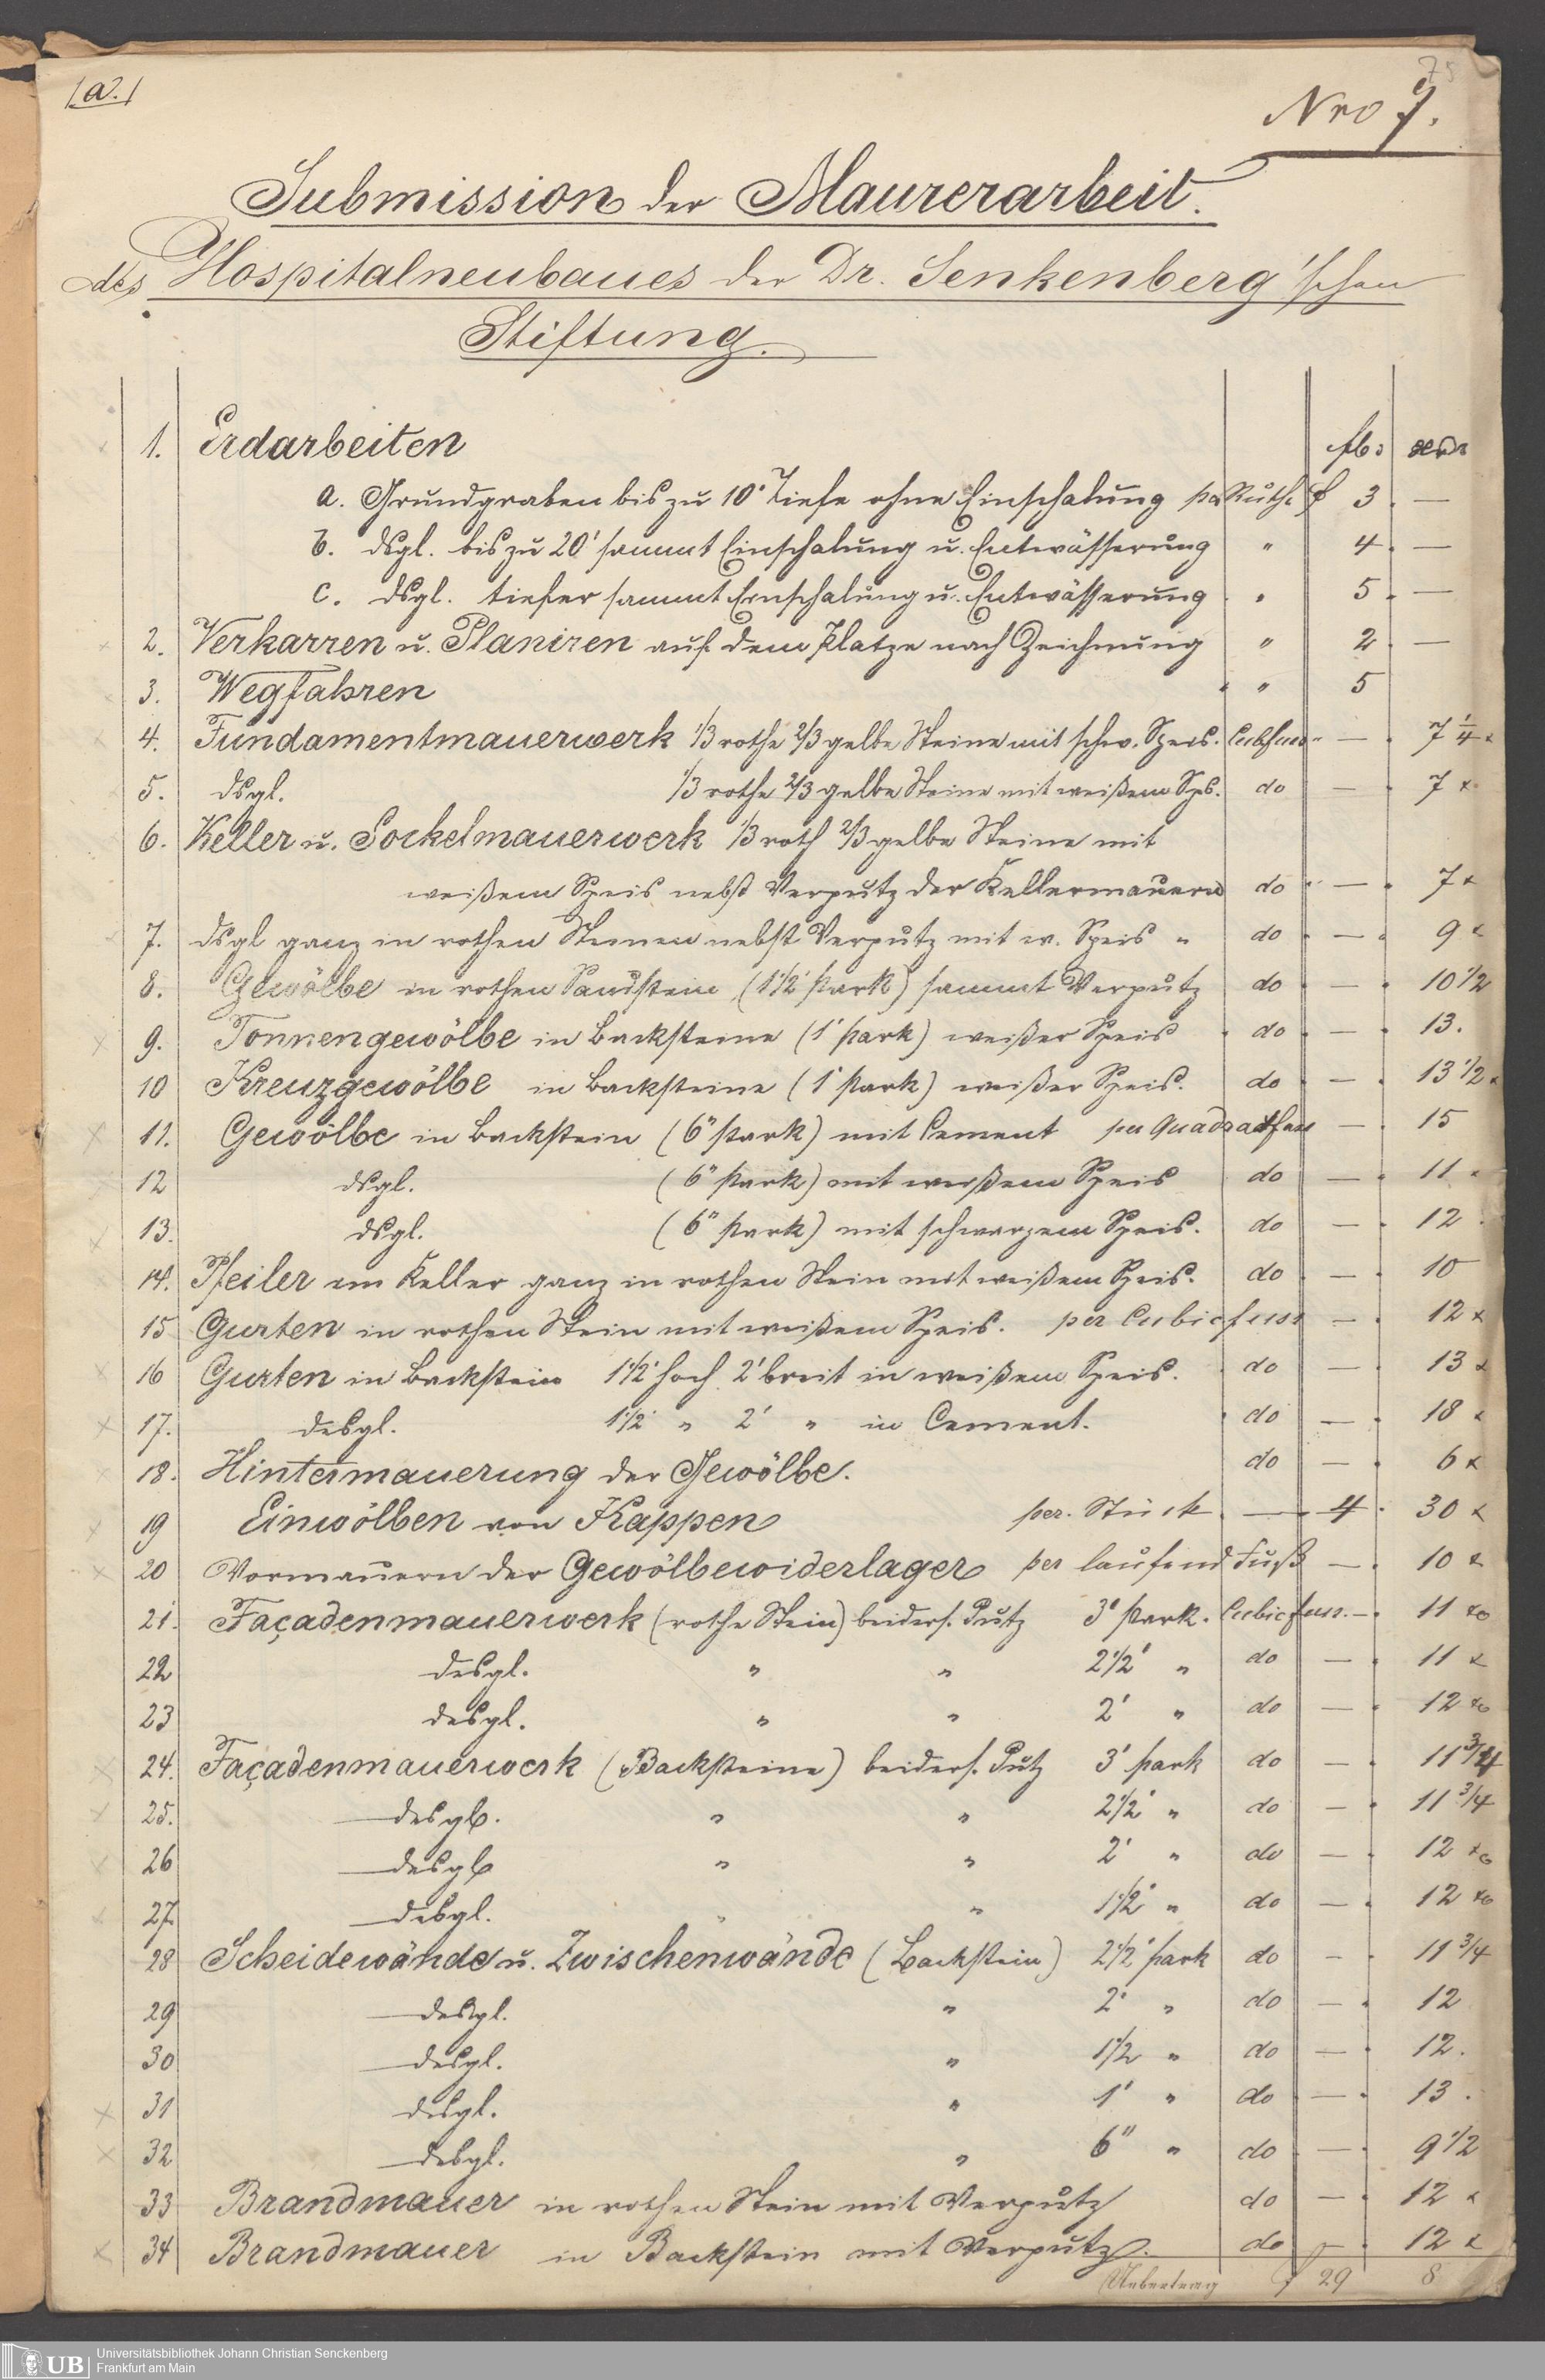 /a./
75
Nro 7.
Submission der Maurerarbeit.
des Hospitalneubaues der Dr. Senkenberg'schen
Stiftung.
1. Erdarbeiten fl. xr
a. Grundgraben bis zu 10' Tiefe ohne Einschalung pr Ruth. f 3 —
b. dsgl. bis zu 20' sammt Einschalung u. Entwässerung " 4. —
c. dsgl. tiefer sammt Einschalung u. Entwässerung " 5. —
2. Verkarren u. Planiren auf dem Platze nach Zeichnung " 2. —
3. Wegfahren " 5
4. Fundamentmauerwerk 1/3 rothe 2/3 gelbe Steine mit schw. Speis. Cubfuss — 7 1/4 x
5. dsgl. 1/3 rothe 2/3 gelbe Steine mit weißem Sps. do — 7 x
6. Keller u. Sockelmauerwerk 1/3 roth 2/3 gelbe Steine mit
weißem Speis nebst Verputz der Kellermauern do — 7 x
7. dsgl ganz in rothen Steinen nebst Verputz mit w. Speis " do — 9 x
8. Gewölbe in rothen Sandstein (1 1/2' stark) sammt Verputz do — 10 1/2
9. Tonnengewölbe in Backsteine (1' stark) weißer Speis do — 13.
10 Kreuzgewölbe in Backsteine (1' stark) weißer Speis. do — 13 1/2 x
11. Gewölbe in Backstein (6" stark) mit Cement per Quadratfuss — 15
12 dsgl. (6" stark) mit weißem Speis do — 11 x
13. dsgl. (6" stark) mit schwarzem Speis. do — 12
14. Pfeiler im Keller ganz in rothen Stein mit weißem Speis. do — 10
15 Gurten in rothen Stein mit weißem Speis. per Cubicfuss — 12 x
16 Gurten in Backstein 1 1/2' hoch 2' breit in weißem Speis. do — 13 x
17. desgl. 1 1/2' " 2' " in Cement. do — 18 x
18. Hintermauerung der Gewölbe. do — 6 x
19 Einwölben von Kappen per. Stück — 4 30 x
20 Vormauern der Gewölbewiderlager per laufend Fuß — 10 x
21. Façadenmauerwerk (rothe Stein) beiders. Putz 3' stark. Cubicfuss. — 11 xr
22 desgl. " " 2 1/2' " do — 11 x
23 desgl. " " 2' " do — 12 xr
24. Façadenmauerwerk (Backsteine) beiders. Putz 3' stark do — 11 3/4
25. desgl. " " 2 1/2' " do — 11 3/4
26 desgl " " 2' " do — 12 xr
27 desgl. " " 1 1/2' " do — 12 xr
28 Scheidewände u. Zwischenwände (Backstein) 2 1/2' stark do — 11 3/4
29 desgl. " 2' " do — 12
30 desgl. " 1 1/2 " do — 12.
31 desgl. " 1' " do — 13.
32 desgl. " 6" " do — 9 1/2
33 Brandmauer in rothen Stein mit Verputz do — 12 x
34 Brandmauer in Backstein mit Verputz. do — 12 x
Uebertrag f 29 8
UB Universitätsbibliothek Johann Christian Senckenberg
Frankfurt am Main